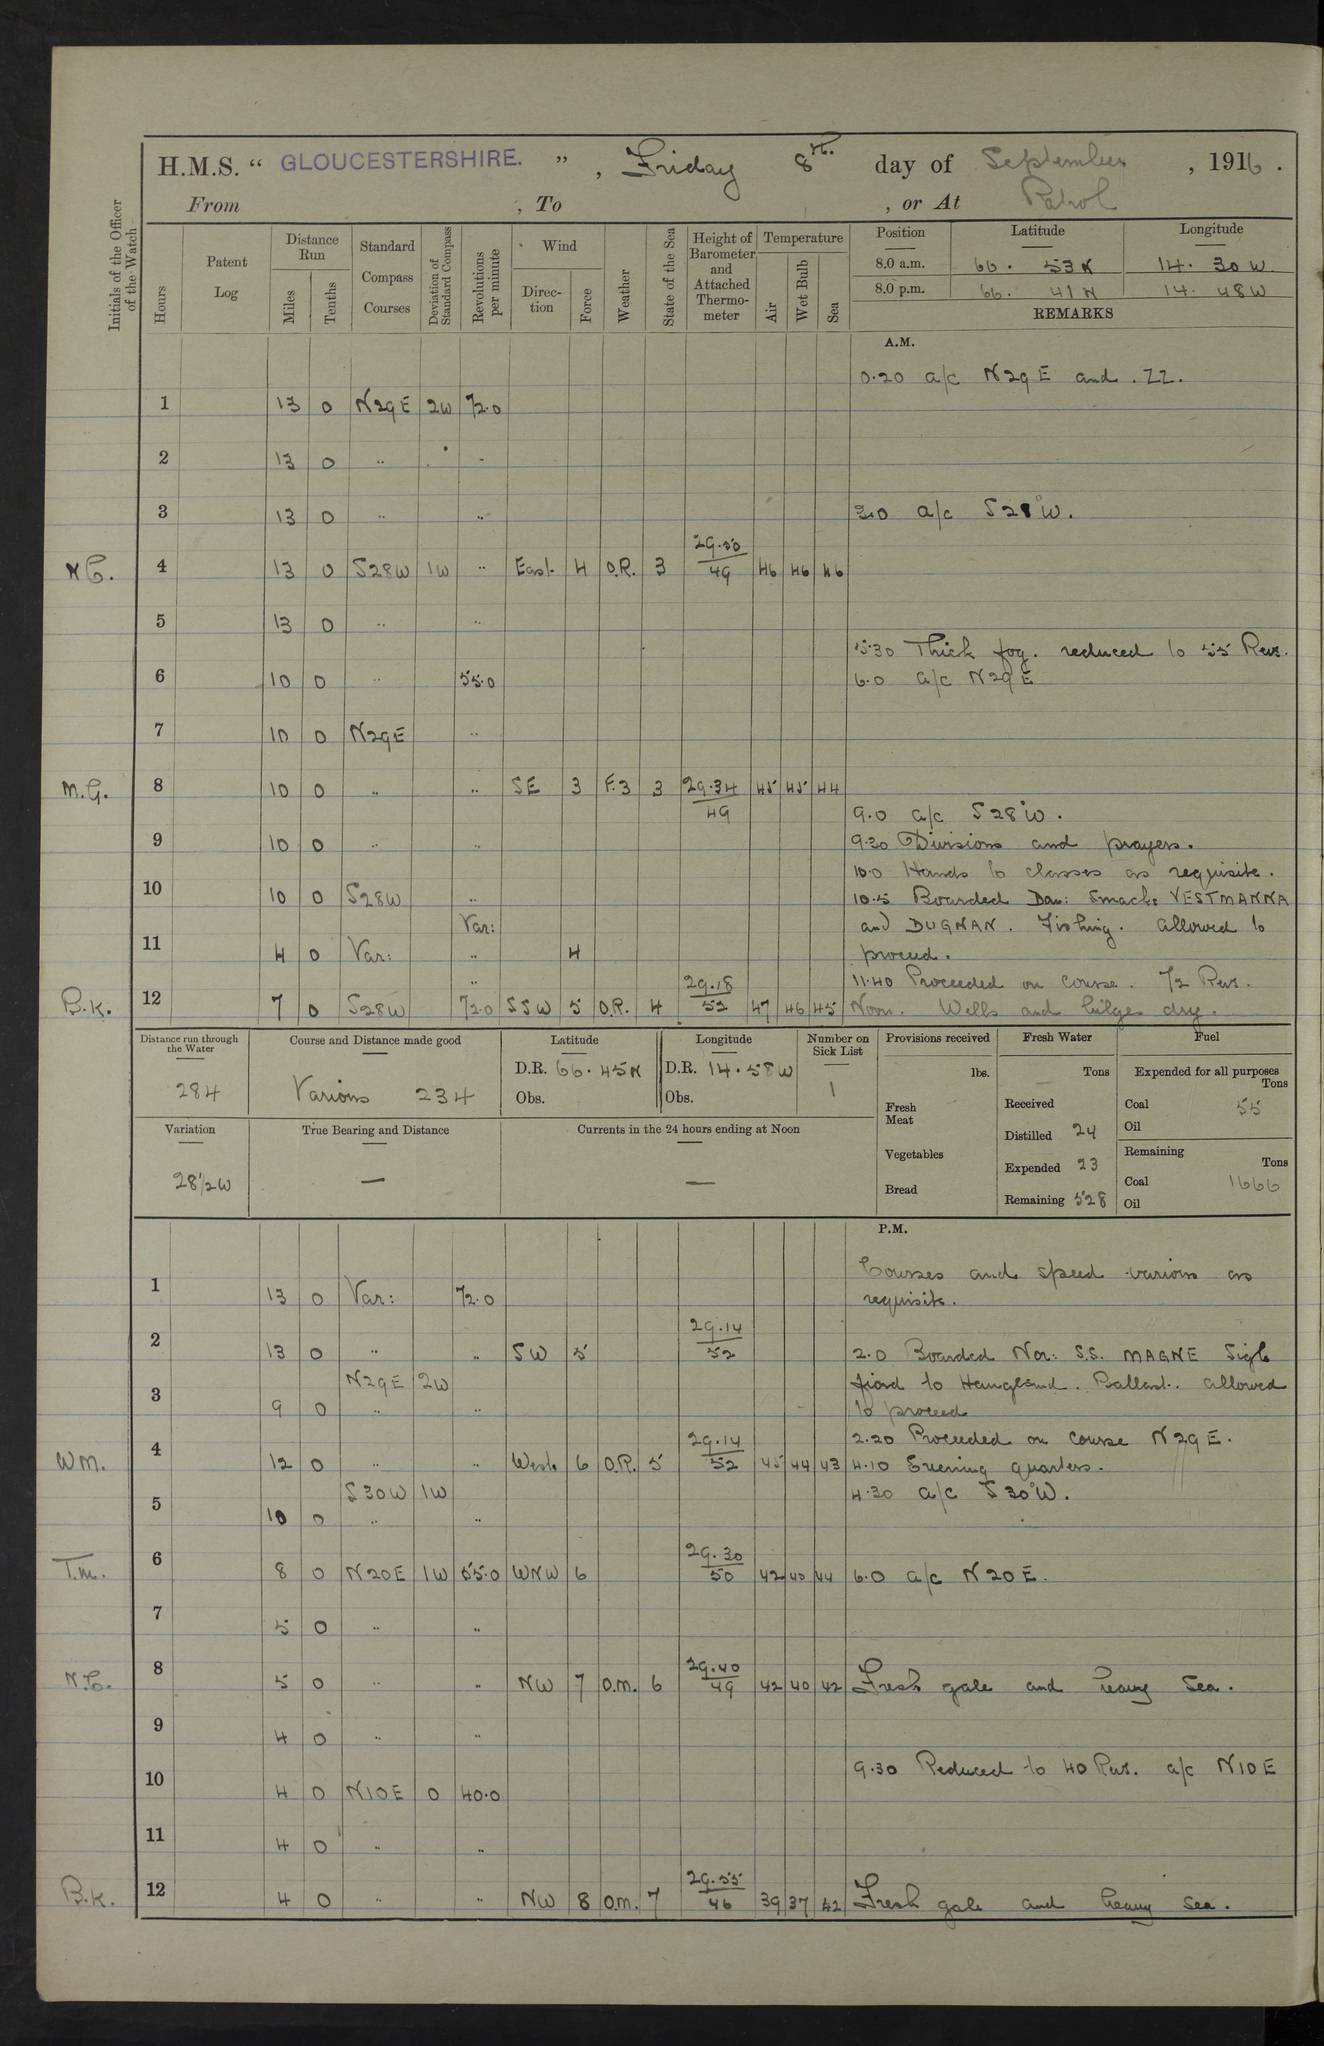 H.M.S. “ GLOUCESTERSHIRE. ” , Friday 8th. day of September , 1916 .
From , To , or At Patrol
Initials of the Officer of the Watch
Hours
Patent Log
Distance Run
Miles
Tenths
Standard Compass Courses
Deviation of Standard Compass
Revolutions per minute
Wind
Direction
Force
Weather
State of the Sea
Height of Barometer and Attached Thermometer
Temperature
Air
Wet Bulb
Sea
Position Latitude Longitude
8.0 a.m. 66. 53 N 14. 30 W
8.0 p.m. 66. 41 N 14. 48 W
REMARKS
A.M.
0.20 a/c N29E and .ZZ.
1 13 0 N29E 2W 72.0
2 13 0 .. . -
3 13 0 .. .. 3.0 a/c S28°W.
29.50
N.C. 4 13 0 S28W 1W .. East. 4 O.R. 3 49 46 46 46
5 13 0 .. ..
5.30 Thick fog. reduced to 55 Revs.
6 10 0 .. 55.0 6.0 a/c N29E
7 10 0 N29E ..
M.G. 8 10 0 .. .. SE 3 F.3 3 29.34 45 45 44
49
9.0 a/c S28°W.
9 10 0 .. .. 9.30 Divisions and prayers.
10.0 Hands to classes as requisite.
10 10 0 S28W .. 10.5 Boarded Dan: Smacks VESTMANNA
Var: and DUGNAN. Fishing. allowed to
11 4 0 Var: .. 4 proceed.
.. 29.18 11.40 Proceeded on course. 72 Revs.
B.K. 12 7 0 S28W 72.0 SSW 5 O.R. 4 52 47 46 45 Noon. Wells and bilges dry.
Distance run through the Water
284
Course and Distance made good
Various 234
Latitude
D.R. 66. 45 N
Obs.
Longitude
D.R. 14. 58 W
Obs.
Number on Sick List
1
Provisions received
lbs.
Fresh Meat
Vegetables
Bread
Fresh Water
Tons
Received
Distilled 24
Expended 23
Remaining 528
Fuel
Expended for all purposes
Tons
Coal 55
Oil
Remaining
Tons
Coal 1666
Oil
Variation
28 1/2 W
True Bearing and Distance
—
Currents in the 24 hours ending at Noon
—
P.M.
Courses and speed various as
1 13 0 Var: 72.0 requisite.
29.14
2 13 0 .. .. SW 5 52 2.0 Boarded Nor: S.S. MAGNE Sigle
N29E 2W fiord to . Ballast. allowed
3 9 0 .. .. to proceed
29.14 2.20 Proceeded on course N29E.
WM. 4 12 0 .. .. West. 6 O.R. 5 52 45 44 43 4.10 Evening quarters.
S30W 1W 4.30 a/c S30°W.
5 10 0 .. ..
29.30
T.M. 6 8 0 N20E 1W 55.0 WNW 6 50 42 40 44 6.0 a/c N20E.
7 5 0 .. ..
29.40
N.C. 8 5 0 .. .. NW 7 O.M. 6 49 42 40 42 Fresh gale and heavy sea.
9 4 0 .. ..
9.30 Reduced to 40 Revs. a/c N10E
10 4 0 N10E 0 40.0
11 4 0 .. ..
29.55
B.K. 12 4 0 .. .. NW 8 O.M. 7 46 39 37 42 Fresh gale and heavy sea.